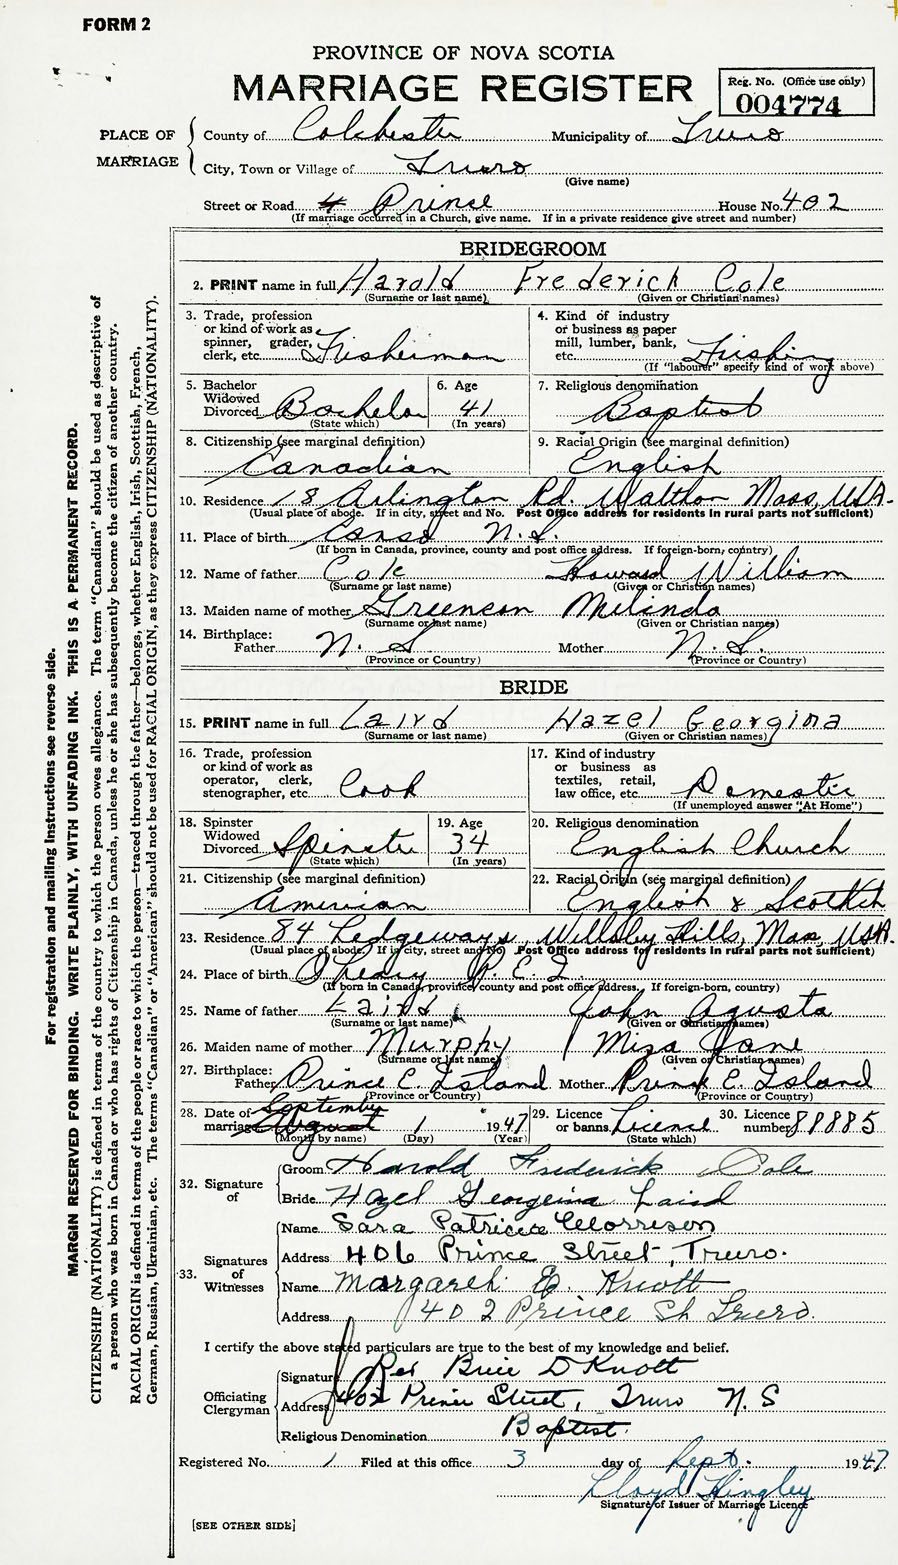 FORM 2
PROVINCE OF NOVA SCOTIA
MARRIAGE REGISTER
Reg. No. (Office use only)
004774
PLACE OF MARRIAGE
County of Colchester Municipality of Truro
City, Town or Village of Truro
(Give name)
Street or Road Prince House No. 402
(If marriage occurred in a Church, give name. If in a private residence give street and number)
BRIDEGROOM
2. PRINT name in full Harold Frederick Cole
(Surname or last name) (Given or Christian names)
3. Trade, profession or kind of work as spinner, grader, clerk, etc. Fisherman
4. Kind of industry or business as paper mill, lumber, bank, etc. Fishing
(If "labourer" specify kind of work above)
5. Bachelor Widowed Divorced Bachelor
(State which)
6. Age 41
(In years)
7. Religious denomination Baptist
8. Citizenship (see marginal definition) Canadian
9. Racial Origin (see marginal definition) English
10. Residence 18 Arlington Rd. Waltham Mass, USA.
(Usual place of abode. If in city, street and No. Post Office address for residents in rural parts not sufficient)
11. Place of birth Canso N.S.
(If born in Canada, province, county and post office address. If foreign-born, country)
12. Name of father Cole Howard William
(Surname or last name) (Given or Christian names)
13. Maiden name of mother Greencon Milinda
(Surname or last name) (Given or Christian names)
14. Birthplace: Father N. S. Mother N. S.
(Province or Country) (Province or Country)
BRIDE
15. PRINT name in full Laird Hazel Georgina
(Surname or last name) (Given or Christian names)
16. Trade, profession or kind of work as operator, clerk, stenographer, etc. Cook
17. Kind of industry or business as textiles, retail, law office, etc. Domestic
(If unemployed answer "At Home")
18. Spinster Widowed Divorced Spinster
(State which)
19. Age 34
(In years)
20. Religious denomination English Church
21. Citizenship (see marginal definition) American
22. Racial Origin (see marginal definition) English & Scottish
23. Residence 84 Ledgeways, Hills, Mass, USA.
(Usual place of abode. If in city, street and No. Post Office address for residents in rural parts not sufficient)
24. Place of birth P. E. I.
(If born in Canada, province, county and post office address. If foreign-born, country)
25. Name of father Laird John Agusta
(Surname or last name) (Given or Christian names)
26. Maiden name of mother Murphy Misa Jane
(Surname or last name) (Given or Christian names)
27. Birthplace: Father Prince E. Island Mother Prince E. Island
(Province or Country) (Province or Country)
28. Date of marriage September August 1 1947
(Month by name) (Day) (Year)
29. Licence or banns License
(State which)
30. Licence number 89885
32. Signature of
Groom Harold Frederick Cole
Bride Hazel Georgina Laird
33. Signatures of Witnesses
Name Sara Patricia Morrison
Address 406 Prince Street, Truro.
Name Margaret E. Knott
Address 402 Prince St Truro.
I certify the above stated particulars are true to the best of my knowledge and belief.
Officiating Clergyman
Signature Rev Brice D Knott
Address 402 Prince Street, Truro N. S
Religious Denomination Baptist.
Registered No. 1 Filed at this office 3 day of Sept. 1947
Lloyd Hingley
Signature of Issuer of Marriage Licence
[SEE OTHER SIDE]
For registration and mailing instructions see reverse side.
MARGIN RESERVED FOR BINDING. WRITE PLAINLY, WITH UNFADING INK. THIS IS A PERMANENT RECORD.
CITIZENSHIP (NATIONALITY) is defined in terms of the country to which the person owes allegiance. The term "Canadian" should be used as descriptive of
a person who was born in Canada or who has rights of Citizenship in Canada, unless he or she has subsequently become the citizen of another country.
RACIAL ORIGIN is defined in terms of the people or race to which the person—traced through the father—belongs, whether English, Irish, Scottish, French,
German, Russian, Ukrainian, etc. The terms "Canadian" or "American" should not be used for RACIAL ORIGIN, as they express CITIZENSHIP (NATIONALITY).